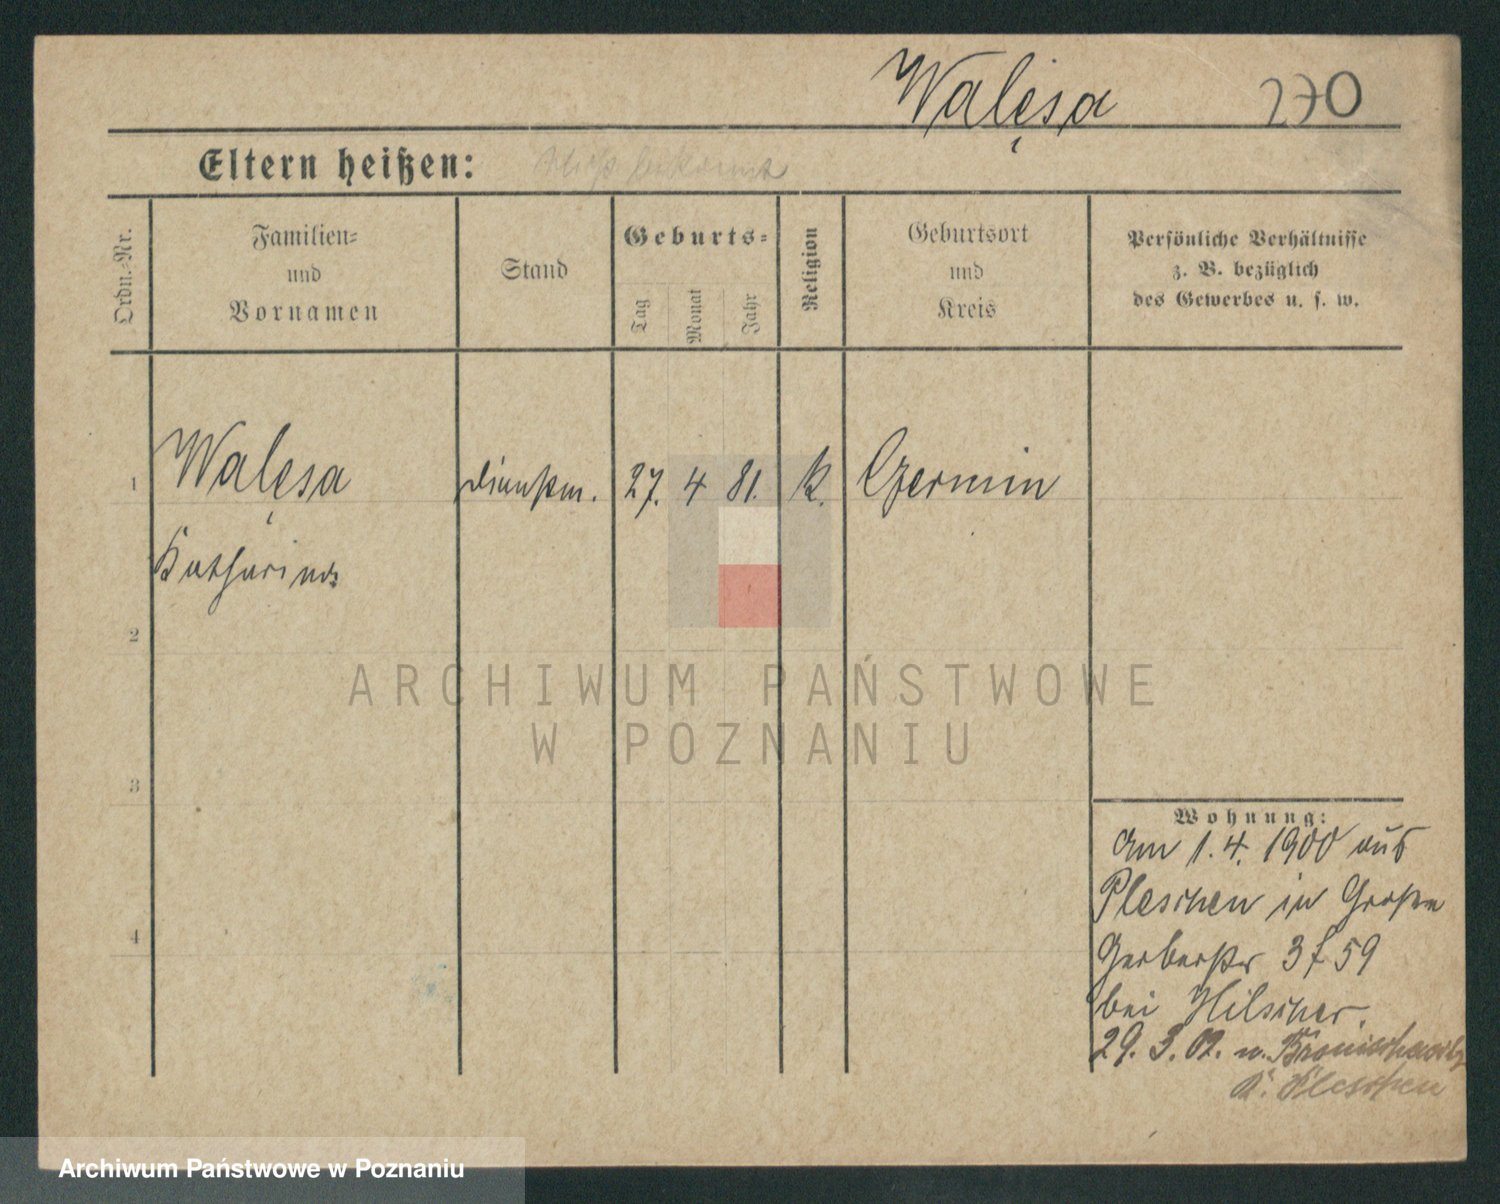 Walęsa 270
Eltern heißen: nicht bekannt
Ordn.-Nr.
Familien-
und
Vornamen
Stand
Geburts-
Tag
Monat
Jahr
Religion
Geburtsort
und
Kreis
Persönliche Verhältnisse
z. B. bezüglich
des Gewerbes u. s. w.
1 Walęsa Dienstm. 27. 4 81. k. Czermin
Katharina
2
ARCHIWUM PAŃSTWOWE
W POZNANIU
3
Wohnung:
Am 1. 4. 1900 aus
Pleschen in Große
4
Gerberstr 59
bei Hilscher.
29. 3. 02. n.
K. Pleschen
Archiwum Państwowe w Poznaniu